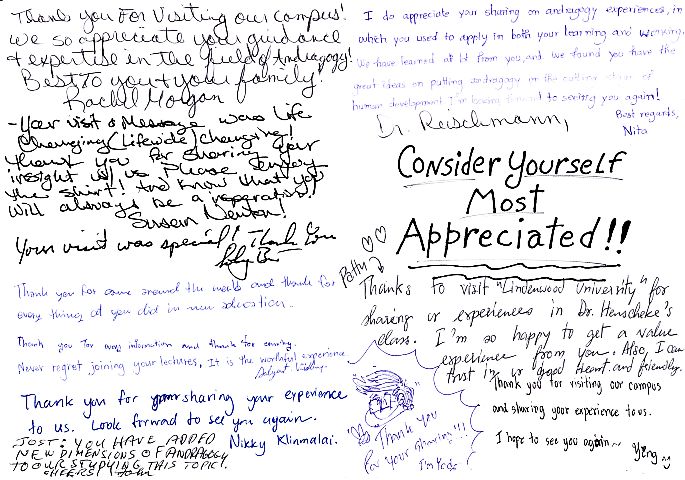 Thank you For Visiting our campus!
We so appreciate your guidance
+ expertise in the field of Andragogy!
Best to you + your family!
Rachel Morgan
- Your visit & Message was Life
Changing (Lifewide) changing!
Thank you for sharing your
insight w/ us. Please enjoy
the shirt! And know that you
will always be a
Susan
Your visit was special! Thank You
Thank you for came around the world and thank for
every things you did in our education..
Thank you for information and thank for coming.
Never regret joining your lectures, It is the wonderful experience
Thank you for sharing your experience
to us. Look forward to see you again.
Nikky Klinmalai.
JOST: YOU HAVE ADDED
NEW DIMENSIONS OF ANDRAGOGY
TO OUR STUDYING THIS TOPIC.
CHEERS! John
I do appreciate your sharing on andragogy experiences, in
which you used to apply in both your learning and working.
We have learned a lot from you, and we found you have the
great ideas on putting andragogy on the of
human development I'm looking forward to seeing you again!
Best regards,
Nita
Dr. Reischmann,
Consider Yourself
Most
Appreciated!!
Patty
Thanks to visit "Lindenwood University" for
sharing ur experiences in Dr. Henscheke's
class. I'm so happy to get a value
experience from you. Also, I can
trust in ur good heart and friendly.
Thank you
for your sharing!!!
I'm
Thank you for visiting our campus
and sharing your experience to us.
I hope to see you again~
Ying